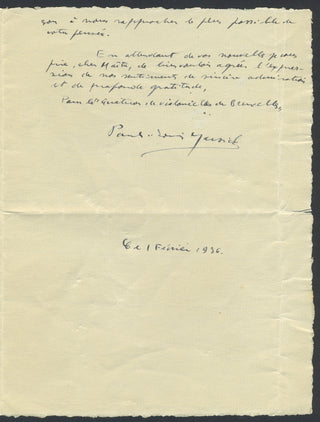 à nous rapprocher le plus possible de
votre pensée.
En attendant de vos nouvelles je vous
prie, cher Maître, de bien vouloir agréer l'expres-
sion de nos sentiments de sincère admiration
et de profonde gratitude,
Pour le Quatuor de violoncelles de Bruxelles,
Paul-Louis
Le 1 Février 1936.